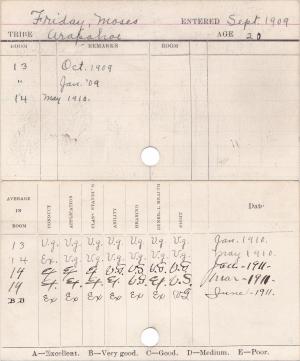 Friday, Moses ENTERED Sept. 1909
TRIBE Arapahoe AGE 20
ROOM REMARKS ROOM
13 Oct. 1909
" Jan. '09
14 May 1910.
AVERAGE IN ROOM CONDUCT APPLICATION ABILITY HEARING SIGHT Date
13 V.g. V.g. V.g. V.g. V.g. V.g. V.g. Jan. 1910.
14 Ex. V.g. V.g. V.g. V.g. V.g. V.g. May 1910.
14 Jan. 1911.
14 Mar. 1911.
B.D Ex Ex Ex Ex Ex Ex June 1911.
A—Excellent. B—Very good. C—Good. D—Medium. E—Poor.